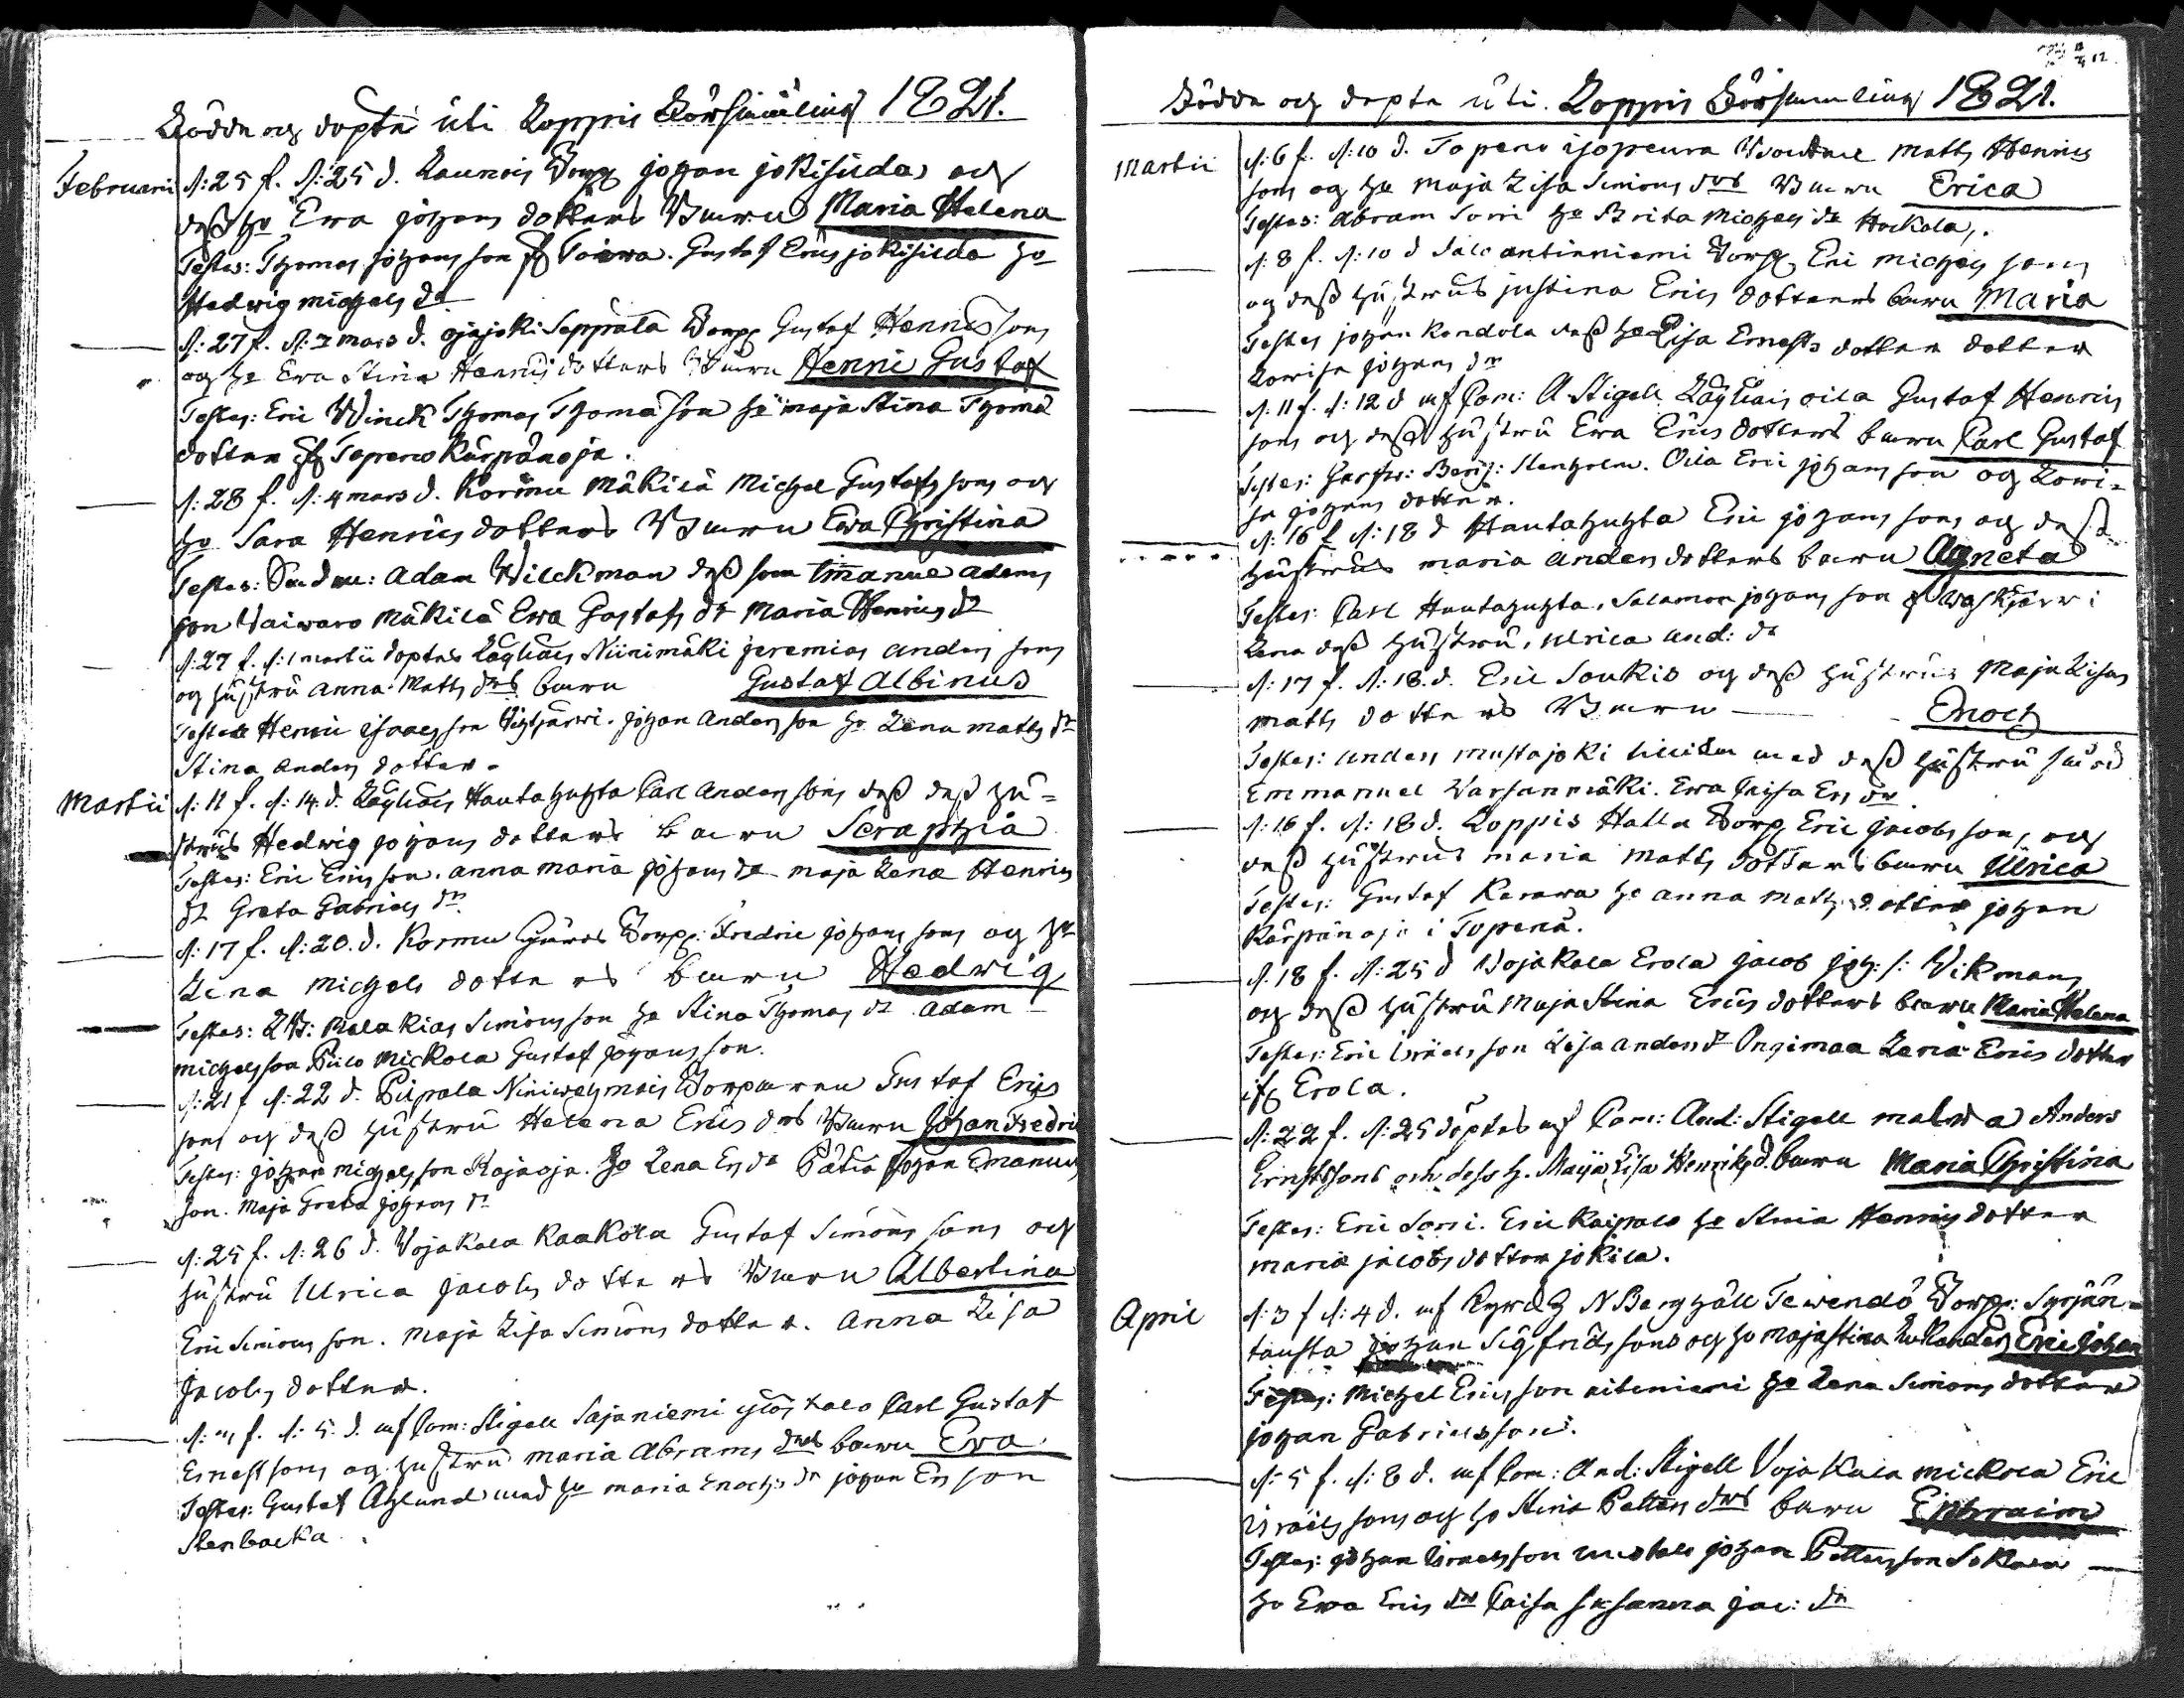 Födde och döpte uti Loppis Församling 1821.
Februarii d: 25 f. d: 25 d. Launois Torp Johan Jokisuda och
deß ho Ewa Johans dotters Barn Maria Helena
Testes: Thomas Johansson fr Toiwo. Gustaf Erics Jokisuda ho
Hedwig Michels dr
d: 27 f. d: 3 mars d. Ojajoki Seppälä Torp Gustaf Henricssons
och ho Ewa Stina Henrics dotters Barn Henric Gustaf
Testes: Eric Winck Thomas Thomasson ho Maja Stina Thomæ
dotter ifr Topeno Kärpänoja.
d: 28 f. d: 4 mars d. Kormu Mäkilä Michel Gustafs sons och
ho Sara Henrics dotters Barn Ewa Christina
Testes: Adam Wilckman deß son Emanuel Adams
son Waiwaro Mäkilä Ewa Gustafs dr Maria Henrics dr
d: 27 f. d: 1 martii döptes Läyliäis Niinimäki Jeremias Anders sons
och hustru Anna Matts drs barn Gustaf Albinus
Testes Henric Isaacsson Johan Andersson ho Lena Matts dr
Stina Anders dotter.
Martii d: 11 f. d: 14. d. Läyliäis Hautahuhta Carl Anders sons deß deß hu=
strus Hedwig Johans dotters barn Seraphia
Testes: Eric Ericsson. Anna Maria Johans dr Maja Lena Henrics
dr Greta Gabriels dr
d: 17 f. d: 20. d. Kormu Gårds Torp: Fredric Johans sons och ho
Lena Michels dotters barn Hedwig
Testes: Malakias Simonsson ho Stina Thomas dr Adam
Michelsson Pilo Mickola Gustaf Johansson.
d: 21 f d: 22 d. Pilpala Torparen Gustaf Erics
sons och deß hustru Helena Erics drs Barn Johan Fredric
Testes: Johan Michelsson Rajaoja. Ho Lena Ers dr Johan Emanuels
son. Maja Greta Johans dr
d: 25 f. d: 26 d. Wojakala Kaakola Gustaf Simons sons och
hustru Ulrica Jacobs dotters Barn Albertina
Eric Simonsson. Maja Lisa Simons dotter. Anna Lisa
Jacobs dotter.
d: f. d: 5. d. af Com: Stigell Sajaniemi Carl Gustaf
Ernstsons och hustru Maria Abrams drs barn Ewa
Testes: Gustaf Ahlund med ho Maria Enochs dr Johan Ersson
Stenbacka.
Födde och döpte uti Loppis Församling 1821.
Martii d: 6 f. d: 10 d. Topeno Isopeura Matts Henrics
sons och ho Maja Lisa Simons drs Barn Erica
Testes: Abram Sorri ho Brita Michels dr Hockola.
d: 8 f. d: 10 d Torp Eric Michels sons
och deß hustrus Justina Erics dotters barn Maria
Testes Johan Kandola deß ho Lisa Ernsts dotter dotter
Lowisa Johans dr
d: 11 f. d: 12 d af Com: A Stigell Läyliäis Oila Gustaf Henrics
sons och deß hustru Ewa Erics dotters barn Carl Gustaf
Testes: Benj: Stenholm. Oila Eric Johansson och Lowi=
sa Johans dotter.
d: 16 f d: 18 d Hautahuhta Eric Johans sons och deß
hustrus Maria Anders dotters barn Agneta
Testes: Carl Hautahuhta. Salamon Johansson Waskijärwi
Lena deß hustru, Ulrica And: dr
d: 17 f. d: 18. d. Eric Soukis och deß hustrus Maja Lisas
Matts dotters Barn Enoch
Testes: Anders Mustajoki med deß hustru
Emmanuel Warsanmäki. Ewa Caisa Ers dr.
d: 16 f. d: 18 d. Loppis Halla Torp Eric Jacobs sons, och
deß hustrus Maria Matts dotters barn Ulrica
Testes: Gustaf Karawa ho Anna Matts dotter Johan
Kärpänoja i Topenå.
d. 18 f. d: 25 d Wojakala Erola Jacob Joh: s: Wikmans
och deß hustru Maja Stina Erics dotters barn Maria Helena
Testes: Eric Israelsson Lisa Anders dr Lena Erics dotter
ifr Erola.
d: 22 f. d: 25 döptes af Com: And: Stigell Anders
Ernstsons och dess h. Maija Lisa Henriks d. barn Maria Christina
Testes: Eric Sorri. Eric Kaipalo ho Stina Henrics dotter
Maria Jacobs dotter Jokila.
April d: 3 f d: 4 d. af Kyrckh N Berghäll Tewendö Torp: Syrjän=
tausta Johan Sigfrids sons och ho Maja Stina Eric Johan
Testes: Michel Ericsson ho Lena Simons dotter
Johan Gabrielsson.
d: 5 f. d: 8 d. af Com: And: Stigell Wojakala Mickola Eric
Israels sons och ho Stina Petters drs barn Ephraim
Testes: Johan Israelsson Johan Pettersson
ho Ewa Erics dr Caisa Susanna Jac: dr